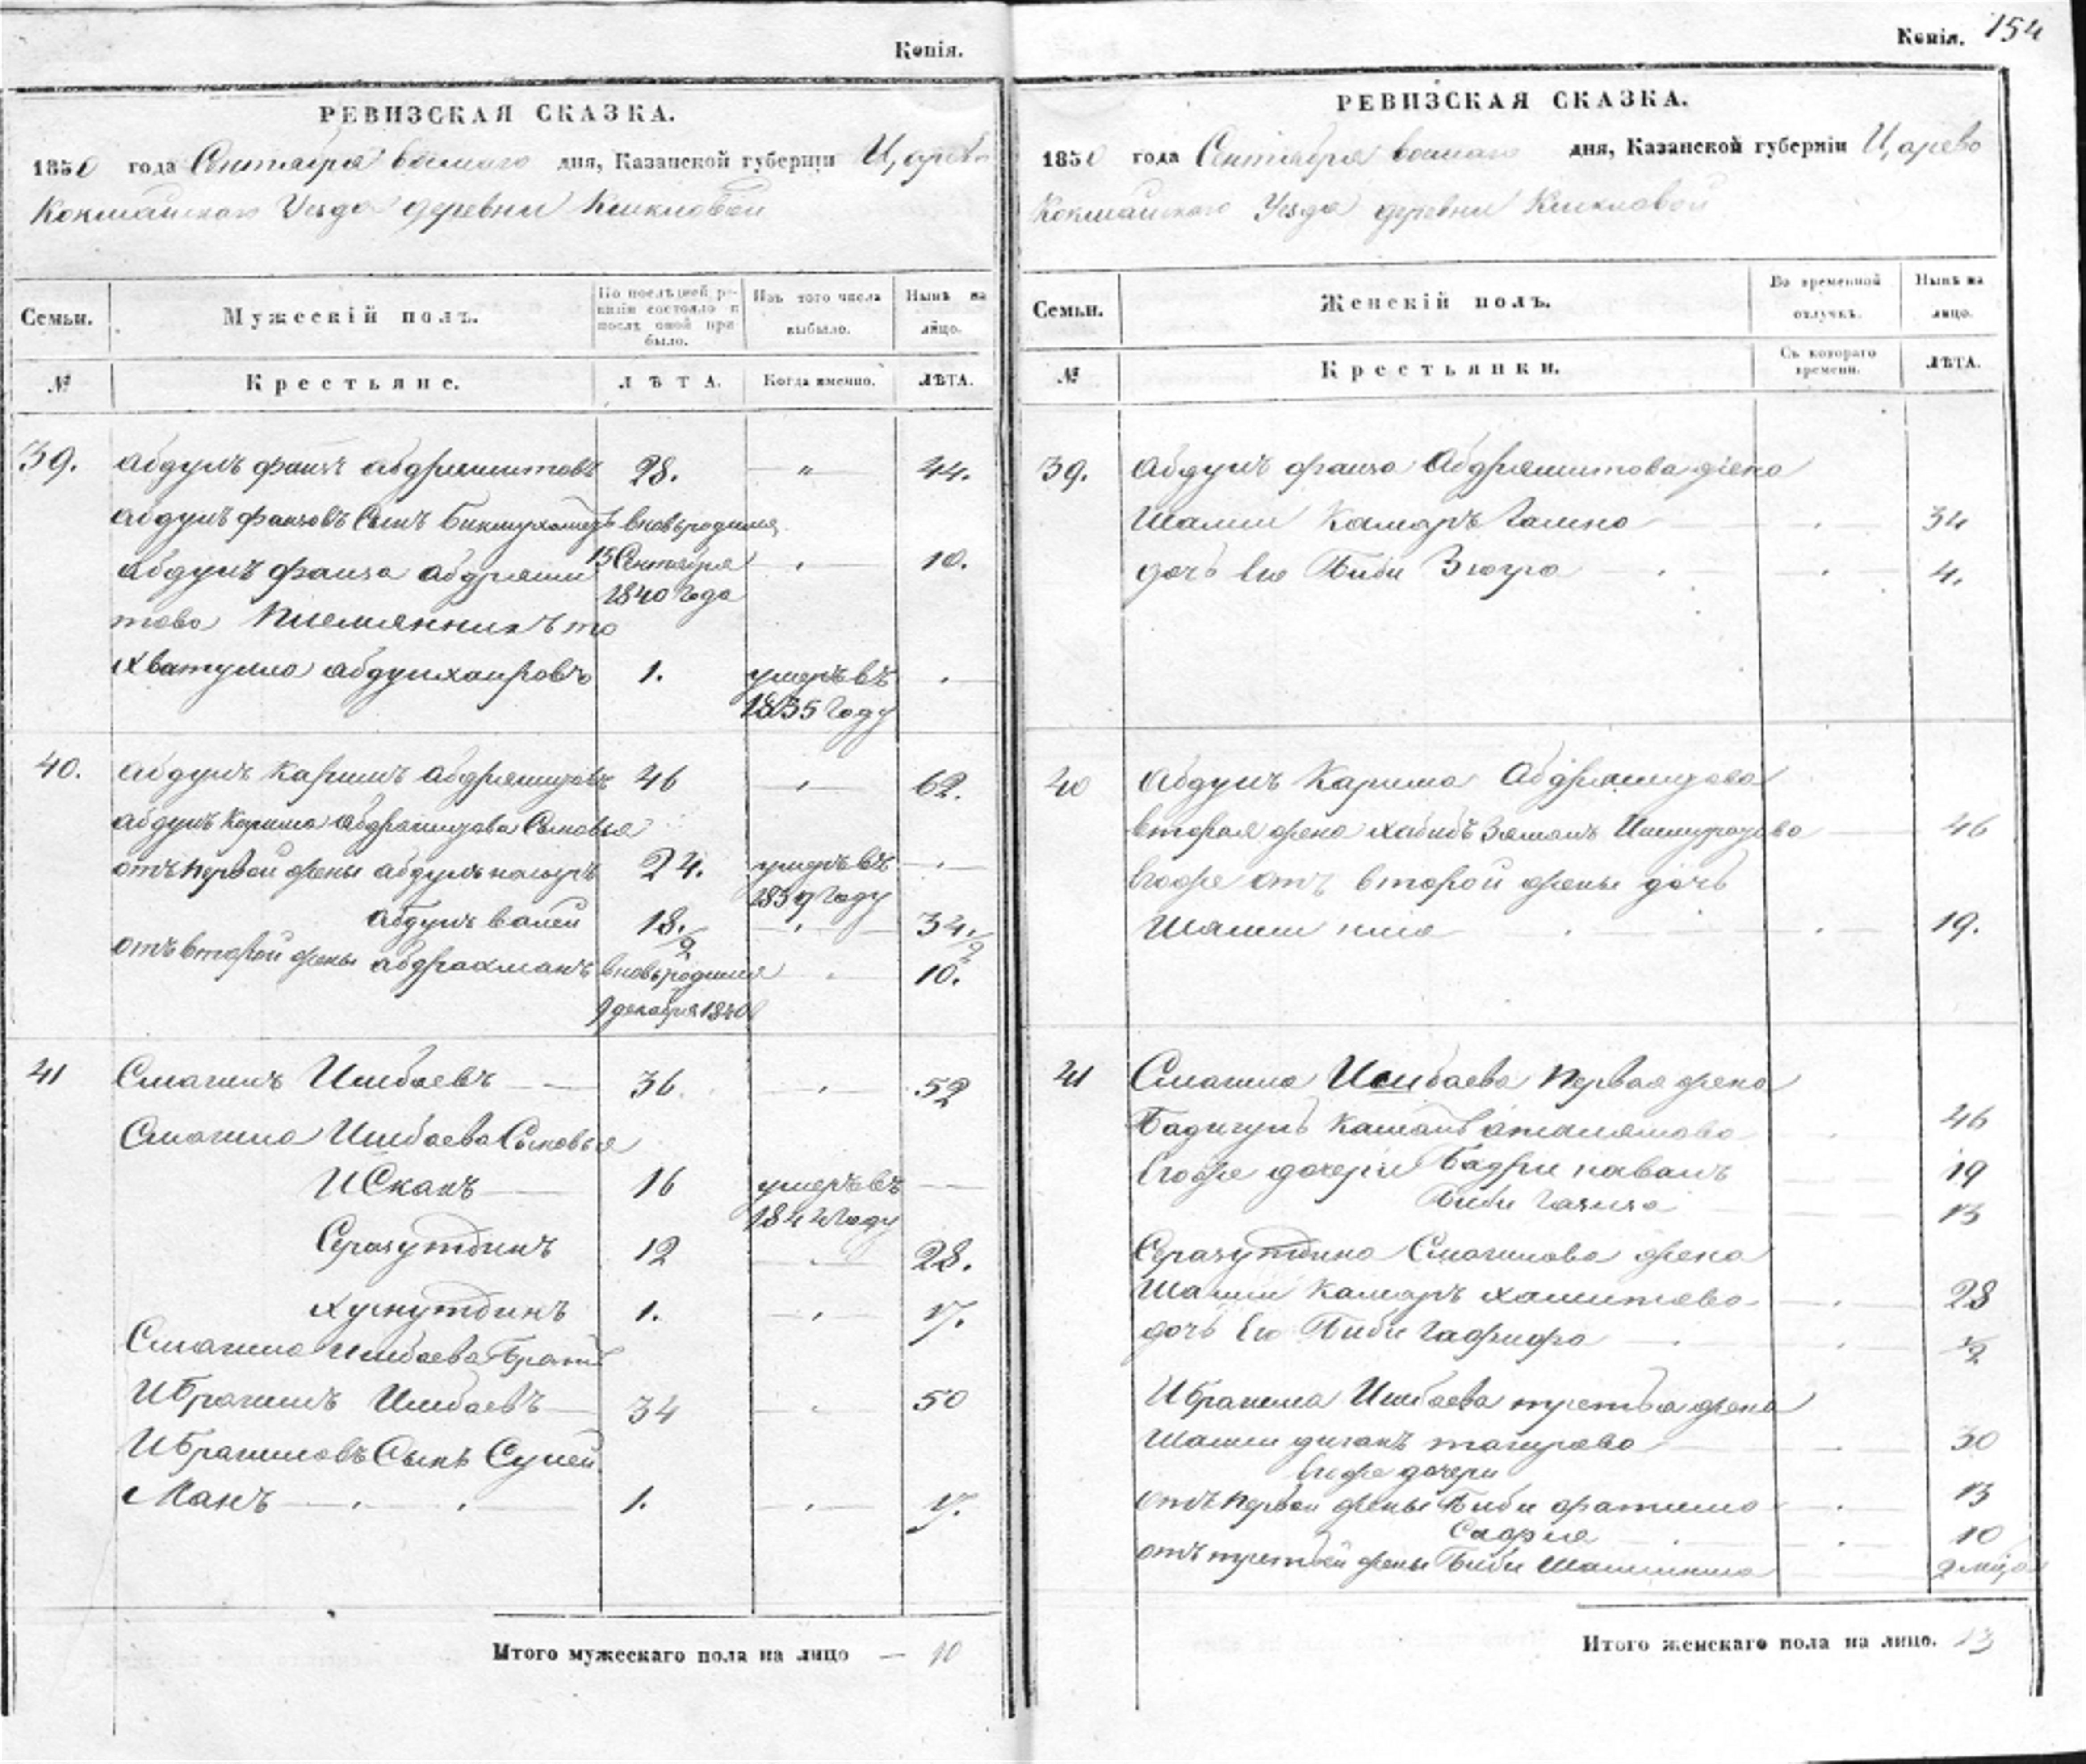 Копія.
РЕВИЗСКАЯ СКАЗКА.
1850 года Сентября восмаго дня, Казанской губерніи Царево
Кокшайскаго Уезда деревни
Семьи.
Мужескій полъ.
По послѣдней ре-
визіи состояло и
послѣ оной при
было.
Изъ того числа
выбыло.
Нынѣ на
лицо.
№
Крестьяне.
ЛѢТА.
Когда именно.
ЛѢТА.
39. Абдулъ фаизъ Абдряшитовъ 28. " 44.
Абдулъ фаизовъ Сынъ Бикмухаметъ вновьродился
15 Сентября 10.
Абдулъ фаиза Абдряши
1840 года
това Племянникъ
Абдулхаировъ 1. умеръ въ
1835 году
40. Абдулъ Каримъ Абдряшитовъ 46 62.
Абдулъ Карима Абдрашитова Сыновья
отъ первой жены Абдулъ насыръ 24. умеръ въ
1839 году
Абдулъ валей 18. 34.
отъ второй жены Абдрахманъ вновьродился 10.
9 декабря 1840
41 Смагилъ Ишбаевъ 36. 52
Смагила Ишбаева Сыновья
Искакъ 16 умеръ въ
1844 году
Серазутдинъ 12 28.
Хуснутдинъ 1. 17.
Смагила Ишбаева Братъ
Ибрагимъ Ишбаевъ 34 50
Ибрагимовъ Сынъ Сулей
Манъ 1. 17.
Итого мужескаго пола на лицо — 10
Копія. 154
РЕВИЗСКАЯ СКАЗКА.
1850 года Сентября восмаго дня, Казанской губерніи Царево
Кокшайскаго Уезда деревни
Семьи.
Женскій полъ.
Во временной
отлучкѣ.
Нынѣ на
лицо.
№
Крестьянки.
Съ котораго
времени.
ЛѢТА.
39. Абдулъ фаиза Абдряшитова жена
Шамси Камаръ Галина 34
дочь Ево Биби Зюгра 4.
40 Абдулъ Карима Абдряшитова
вторая жена хабибъ Замалъ 46
Егоже отъ второй жены дочь
Шамси 19.
41 Смагила Ишбаева первая жена
Бадигулъ 46
Егоже дочери Бадри 19
Биби 13
Серазутдина Смагилова жена
Шамси Камаръ хамитова 28
дочь Ево Биби 1/2
Ибрагима Ишбаева третья жена
Шамси тагирова 30
Егоже дочери
отъ первой жены Биби фатима 13
Сафия 10
отъ третьей жены Биби
Итого женскаго пола на лицо. 13